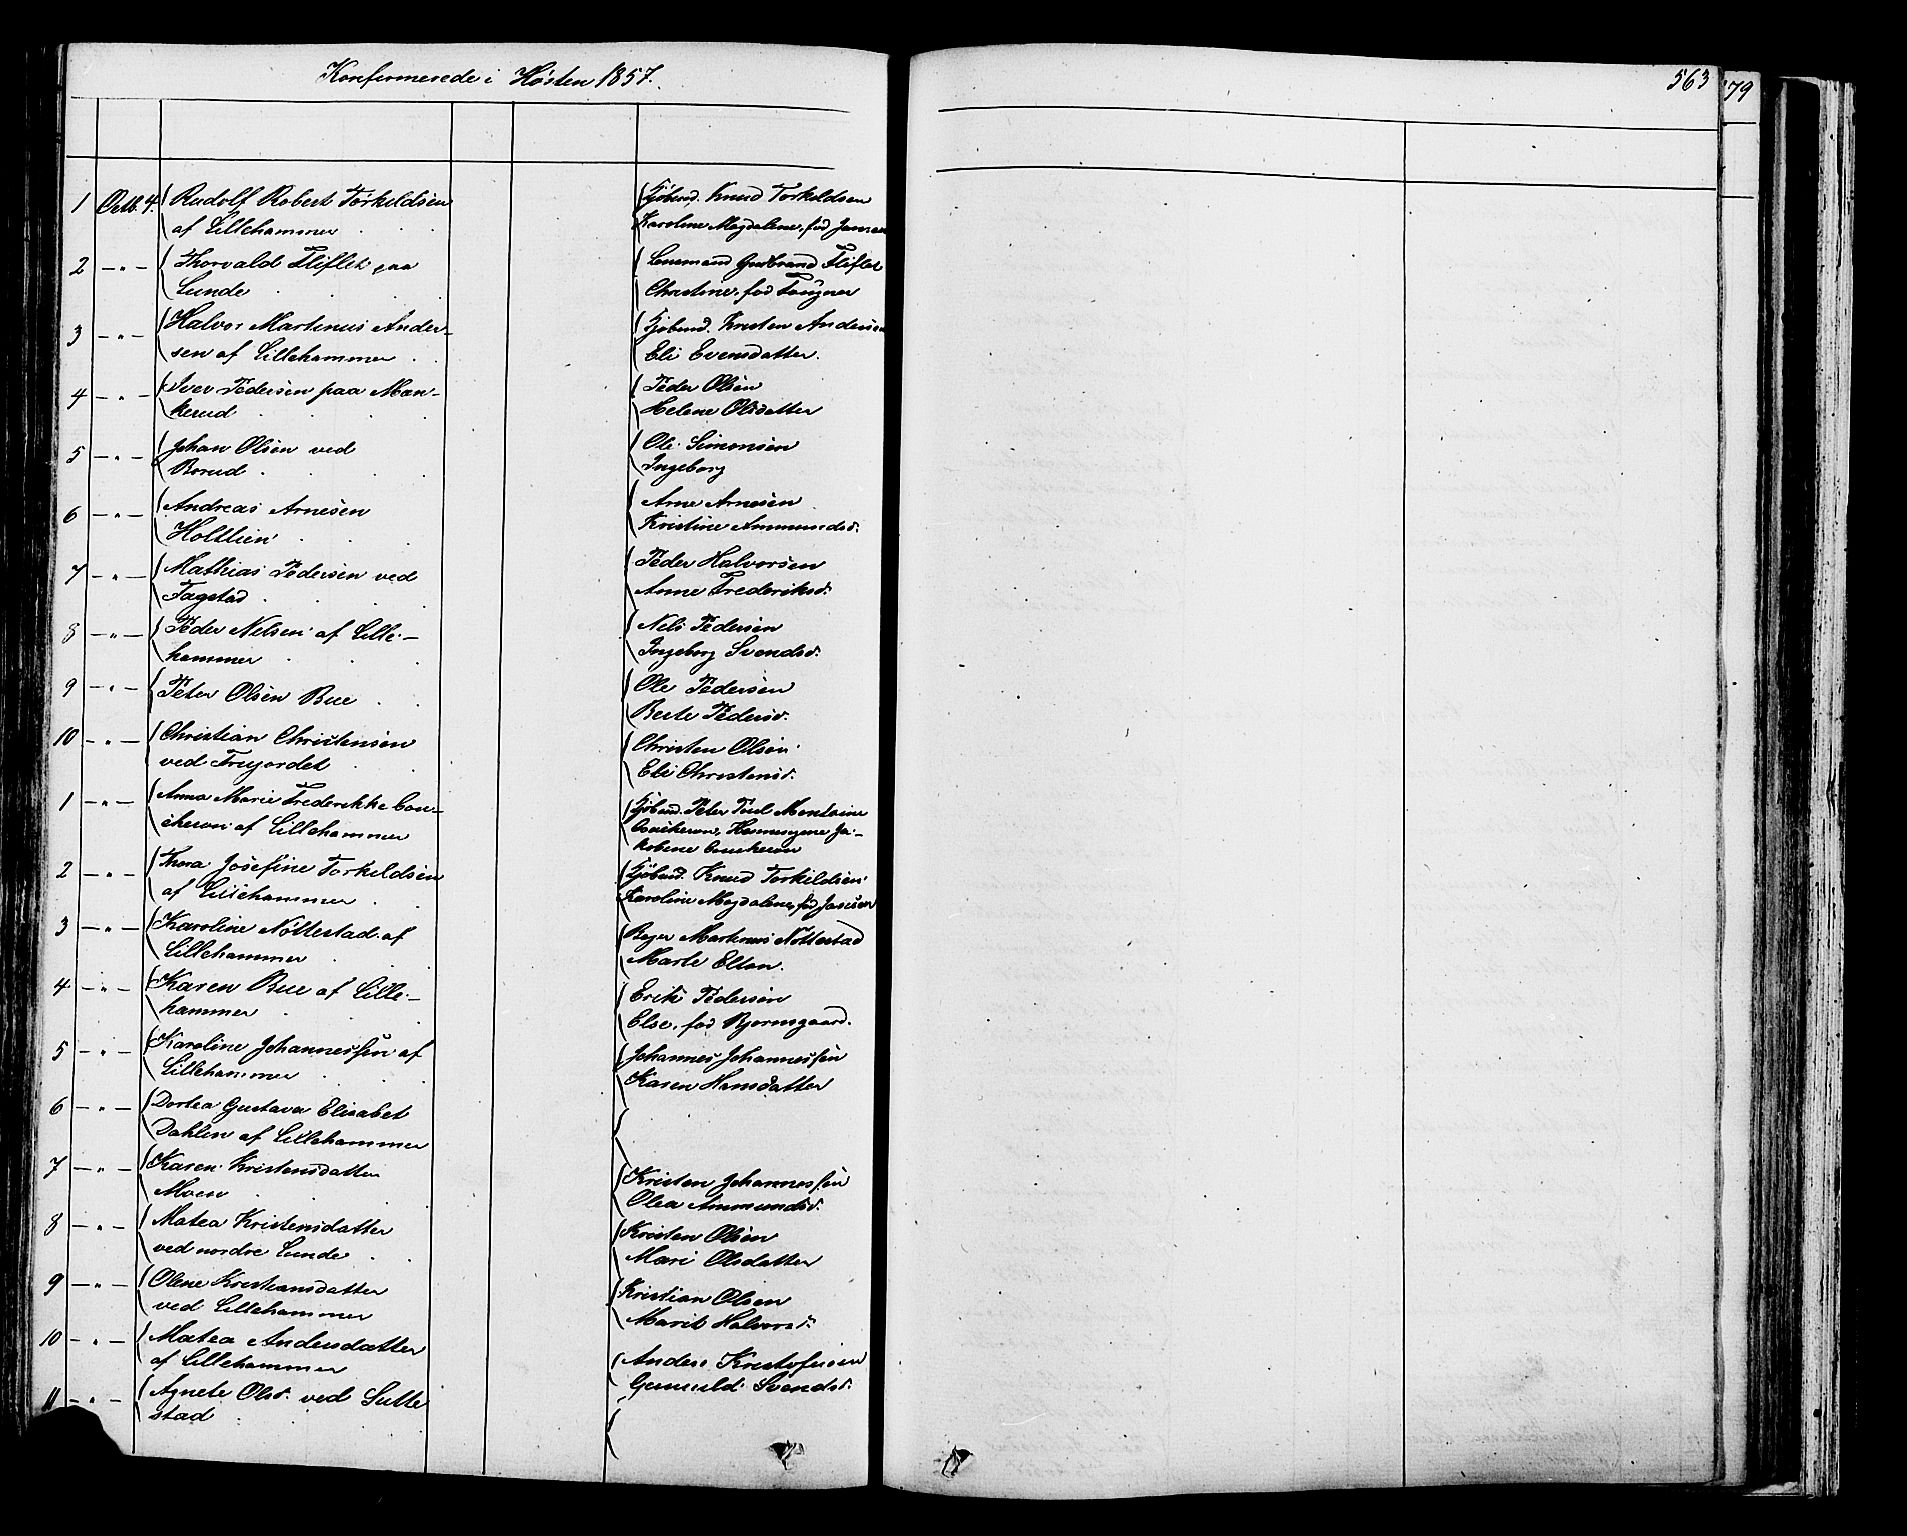 Konfirmerede i Høsten 1857.
563
79
1 Octb. 4. Rudolf Robert Torkildsen
af Lillehammer
Kjøbmd. Knud Torkildsen
Karoline Magdalene, fød Jansen
2 — " — Thorvald Fliflet paa
Lunde
Lensmand Gudbrand Fliflet
Christine, fød Tougner
3 — " — Halvor Martinus Ander-
sen af Lillehammer
Kjøbmd. Kristen Andersen
Eli Evensdatter.
4 — " — Iver Pedersen paa Man-
kerud
Peder Olsen
Helene Olsdatter
5 — " — Johan Olsen ved
Borud
Ole Simonsen
Ingeborg
6 — " — Andreas Arnesen
Holtlien
Arne Arnesen
Kristine Ammundsd.
7 — " — Mathias Pedersen ved
Fagstad
Peder Halvorsen
Anne Frederiksd.
8 — " — Peder Nelsen af Lille-
hammer
Nels Pedersen
Ingeborg Svendsd.
9 — " — Peter Olsen Bue
Ole Pedersen
Berte Pedersd.
10 — " — Christian Christensen
ved Trugordet
Christen Olsen
Eli Christensd.
1 — " — Anna Marie Frederikke Cou-
cheron af Lillehammer
Kjøbmd. Peter Poul Montaine
Coucheron, Hermegyne Ja-
kobine Coucheron
2 — " — Thora Josefine Torkildsen
af Lillehammer
Kjøbmd. Knud Torkildsen
Karoline Magdalene, fød Jansen
3 — " — Karoline Nøttestad af
Lillehammer
Bager Martinus Nøttestad
Marte Elton.
4 — " — Karen Bue af Lille-
hammer
Erik Pedersen
Else, fød Bjørnsgaard.
5 — " — Karoline Johannessen af
Lillehammer
Johannes Johannessen
Karen Hansdatter
6 — " — Dortea Gustava Elisabet
Dahlin af Lillehammer
7 — " — Karen Kristensdatter
Moen
Kristen Johannessen
Olea Ammundsd.
8 — " — Matea Kristensdatter
ved nordre Lunde
Kristen Olsen
Mari Olsdatter
9 — " — Olene Kristiansdatter
ved Lillehammer
Kristian Olsen
Marit Halvorsd.
10 — " — Matea Andersdatter
af Lillehammer
Anders Kristofersen
Gunuld Svendsd.
11 — " — Agnete Olsd. ved Sutte
stad